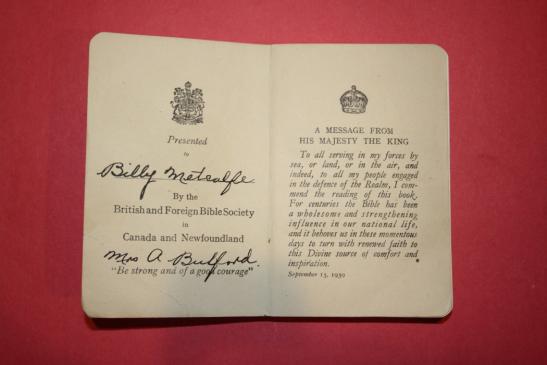 Presented
to
Billy Metcalfe
By the
British and Foreign Bible Society
in
Canada and Newfoundland
Mrs A Bulford.
"Be strong and of a good courage"
A MESSAGE FROM
HIS MAJESTY THE KING
To all serving in my forces by
sea, or land, or in the air, and
indeed, to all my people engaged
in the defence of the Realm, I com-
mend the reading of this book.
For centuries the Bible has been
a wholesome and strengthening
influence in our national life,
and it behoves us in these momentous
days to turn with renewed faith to
this Divine source of comfort and
inspiration.
September 15, 1939